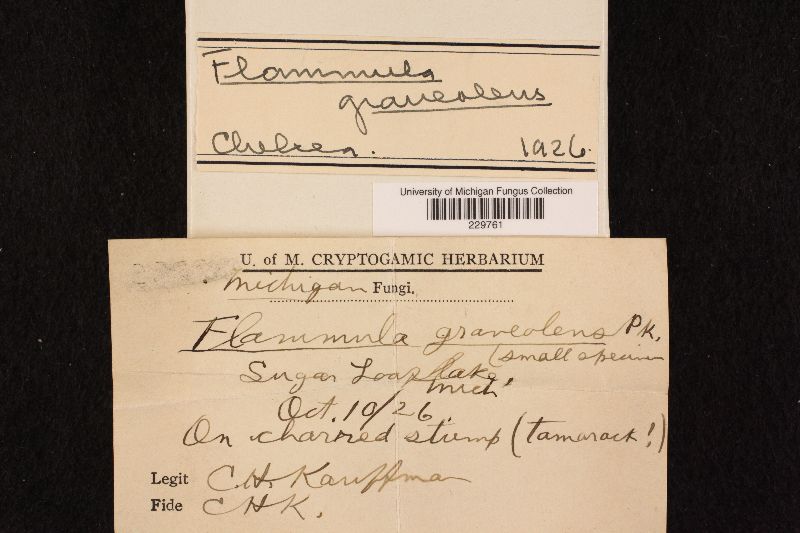 Flammula
graveolens
Chelsea. 1926.
University of Michigan Fungus Collection
229761
U. of M. CRYPTOGAMIC HERBARIUM
Michigan Fungi.
Flammula graveolens Pk.
(small specimen
Sugar Loaf Lake,
Mich.
Oct. 10/26.
On charred stump (tamarack!)
Legit C.H. Kauffman
Fide CHK.